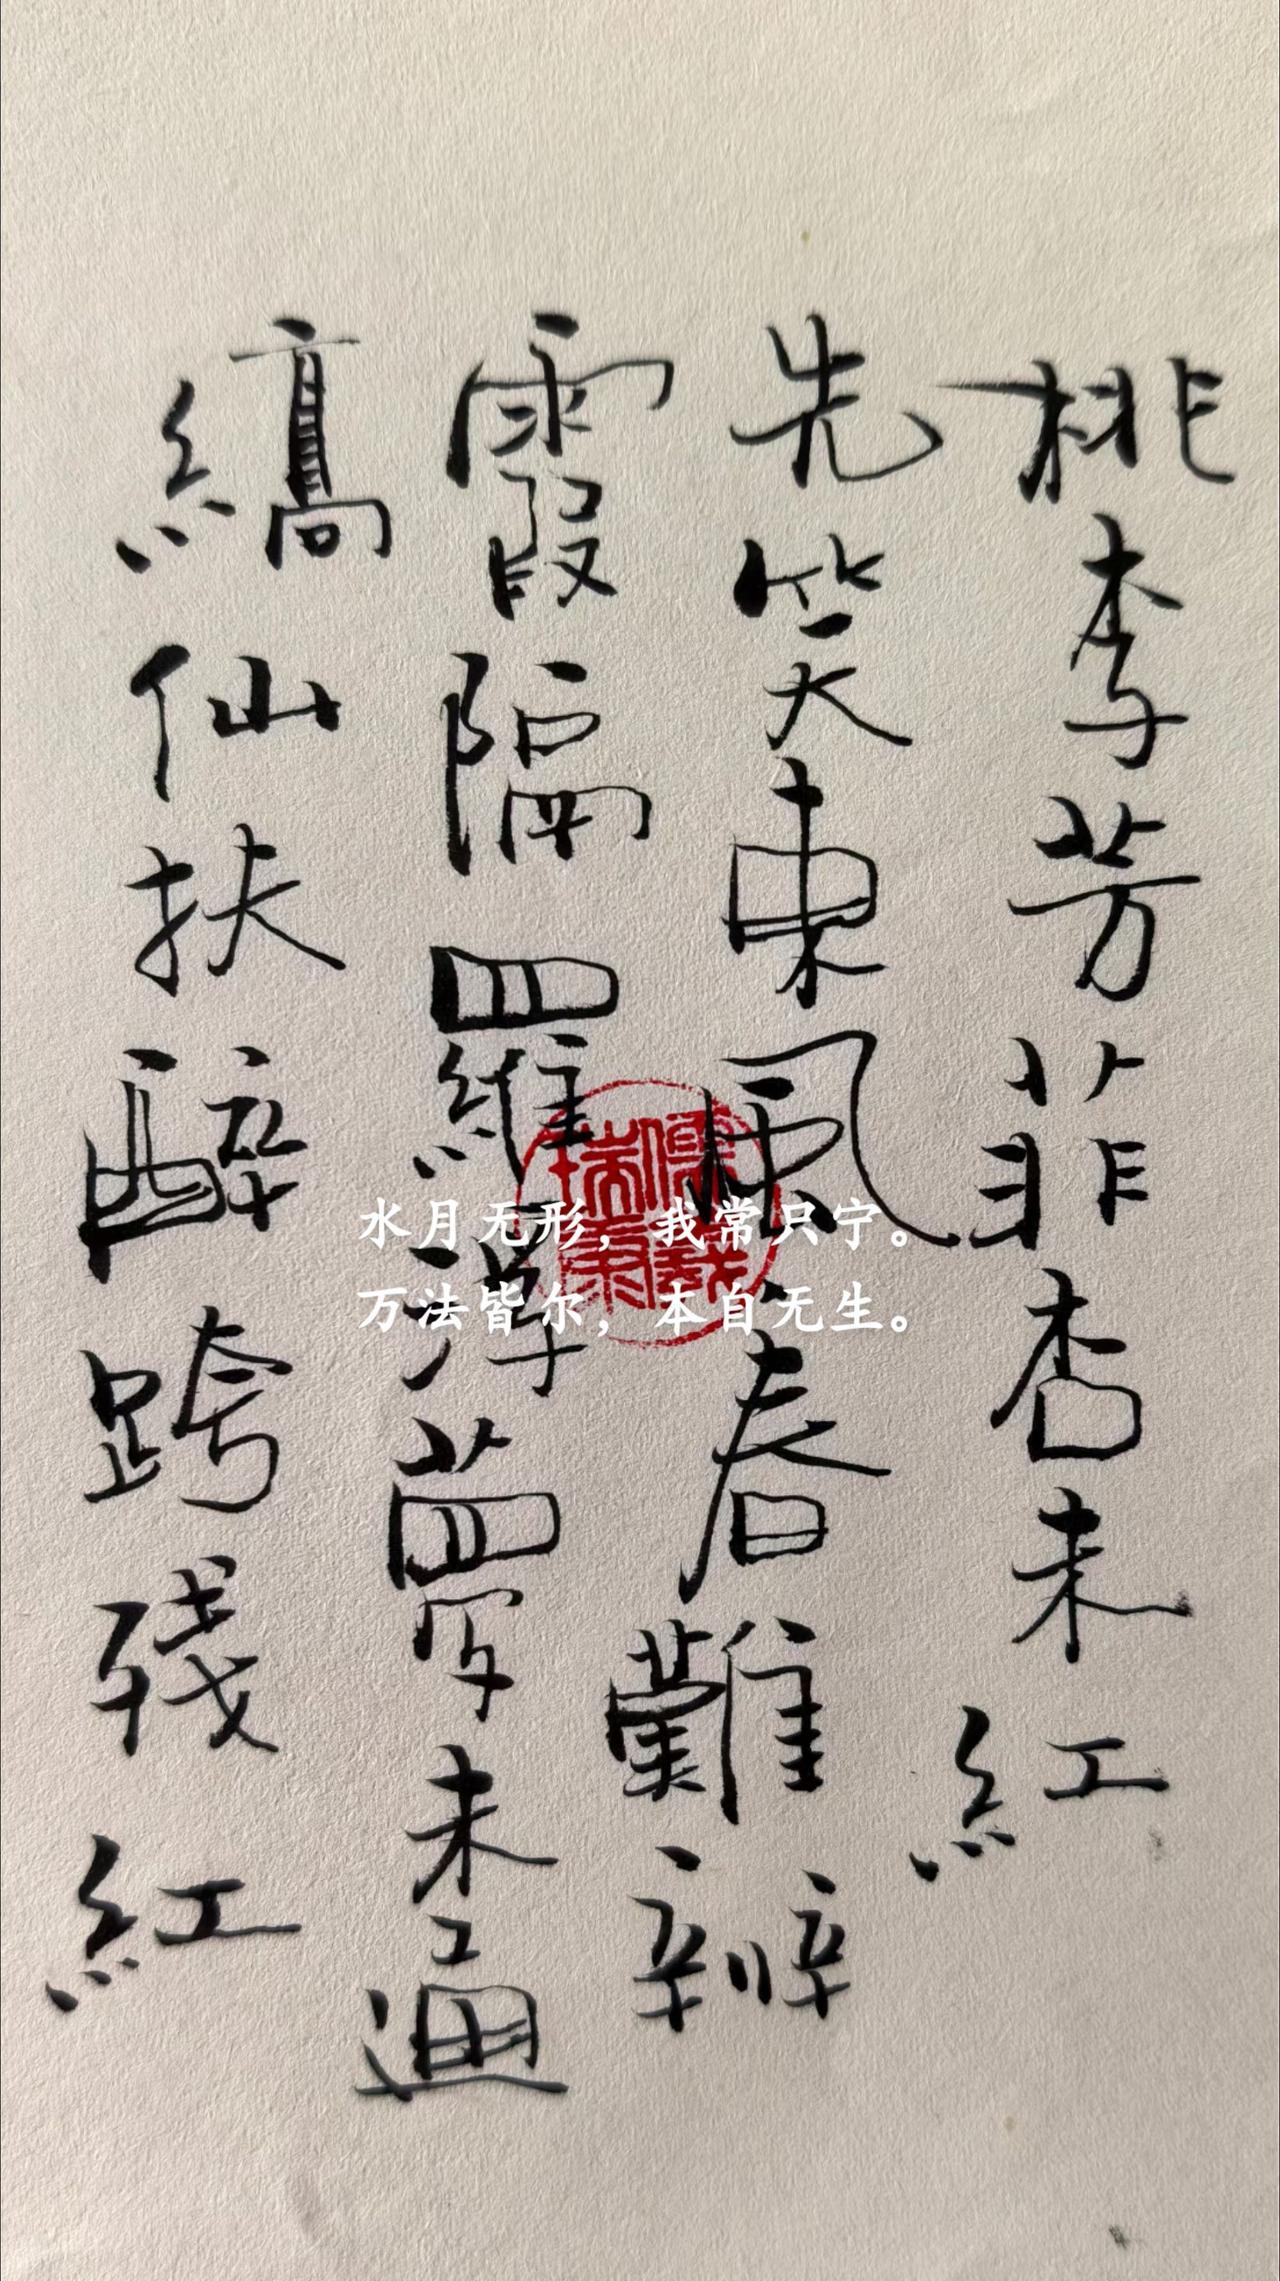 桃李芳菲杏未紅
先笑東風春難辦
霞隔羅浮夢未通
縞仙扶醉跨殘紅
水月无形，我常只宁。
万法皆尔，本自无生。